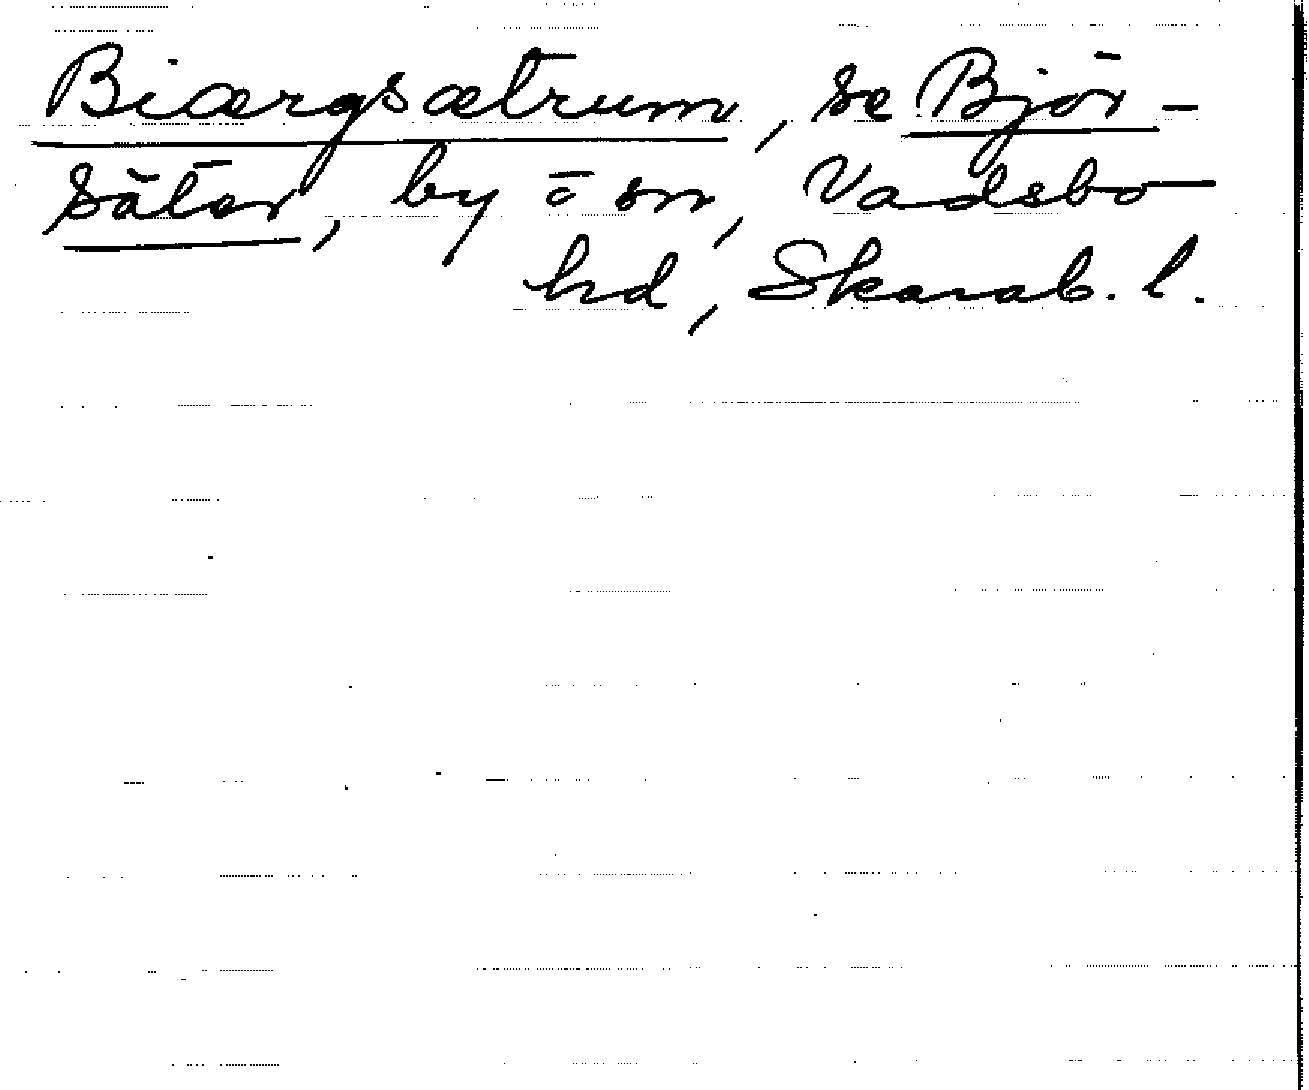 Biærgsætrum, se Björ-
säter, by o sn, Vadsbo
hd, Skarab. l.